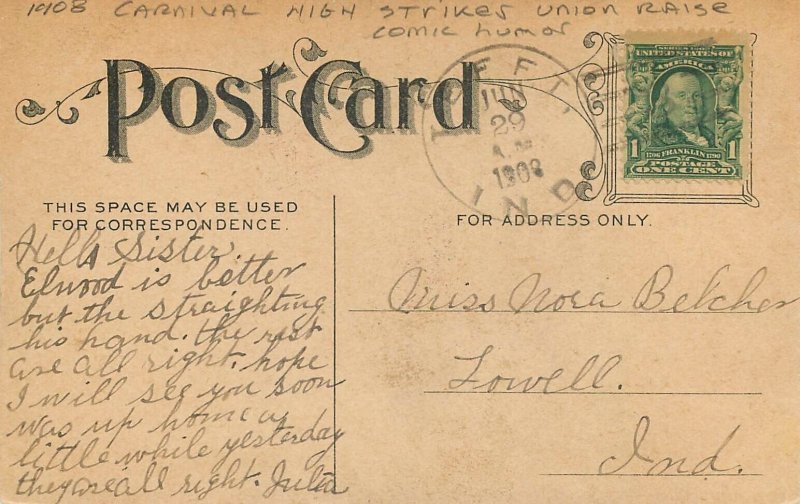 1908 CARNIVAL HIGH STRIKER UNION RAISE
COMIC humor
Post Card
TEFFT,
JUN
29
A.M.
1908
IND
SERIES 1902
UNITED STATES OF AMERICA
1 1706 FRANKLIN 1790 1
POSTAGE
ONE CENT
THIS SPACE MAY BE USED
FOR CORRESPONDENCE.
FOR ADDRESS ONLY.
Hello Sister
Elwood is better
but the straighting
his hand. the rest
are all right. hope
I will see you soon
was up home a
little while yesterday
they are all right. Julia
Miss Nora Belcher
Lowell.
Ind.